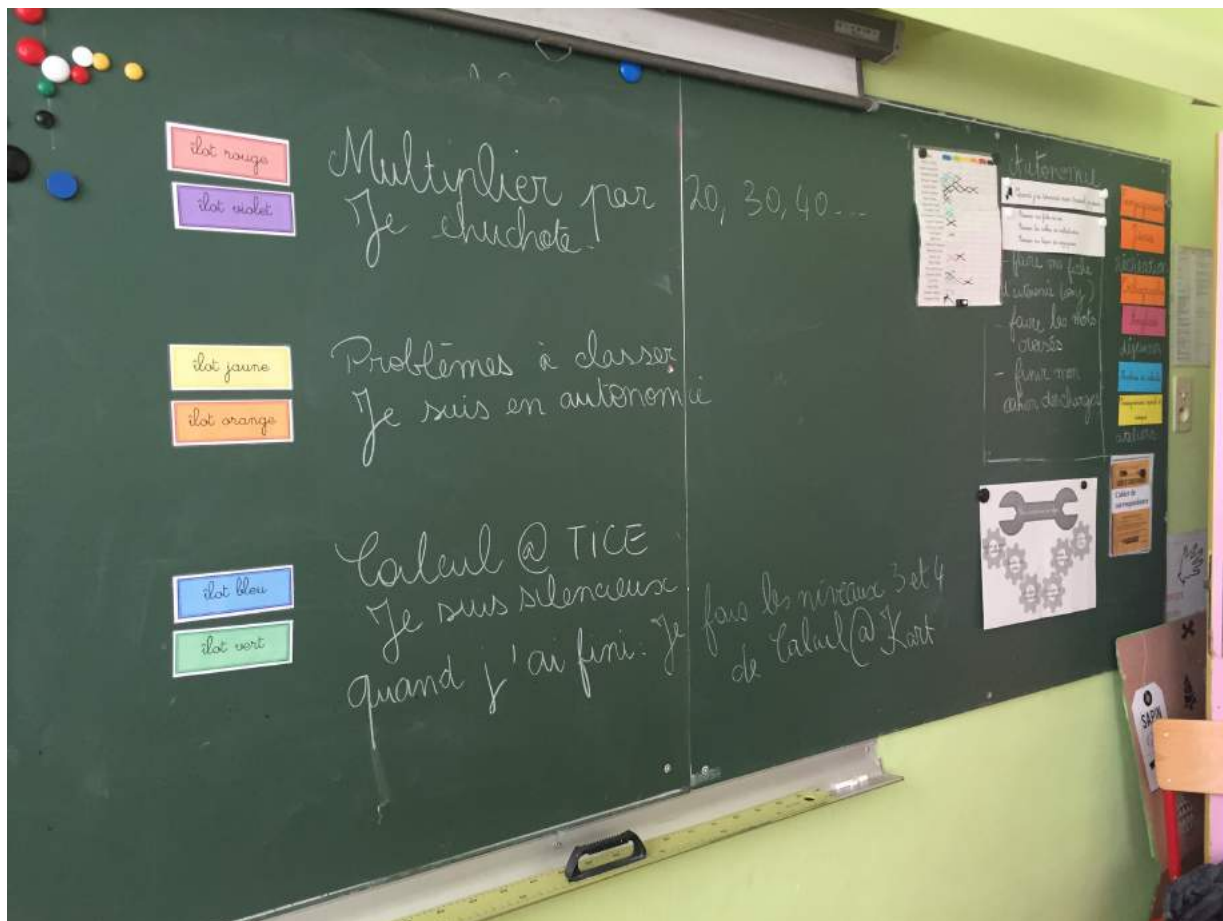 îlot rouge
îlot violet
Multiplier par 20, 30, 40...
Je chuchote.
îlot jaune
îlot orange
Problèmes à classer
Je suis en autonomie
îlot bleu
îlot vert
Calcul @ TICE
Je suis silencieux
quand j'ai fini. Je fais les niveaux 3 et 4
de Calcul@Kart
Autonomie
- faire ma fiche
- faire les mots
croisés
- finir mon
cahier des charges
récréation
déjeuner
ateliers
Cahier de
correspondance
SAPIN